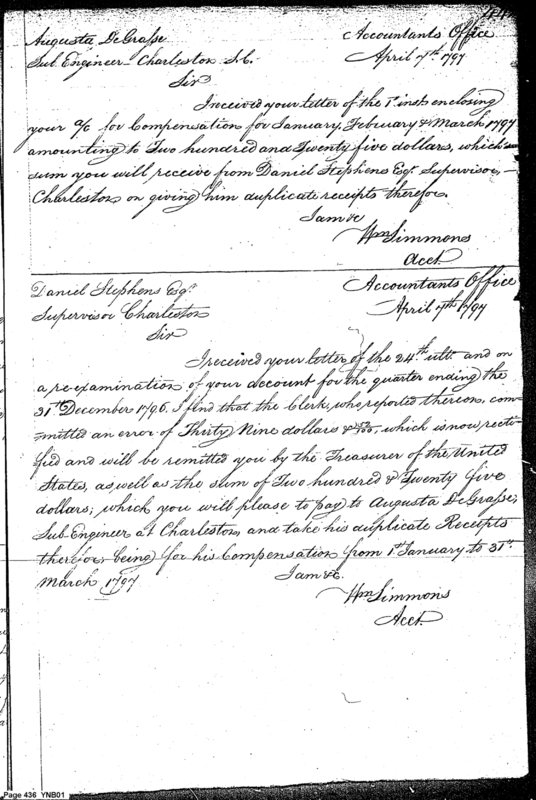 Augusta DeGrasse
Accountants Office
Sub Engineer Charleston S.C.
April 7th 1797
Sir
I received your letter of the 1st inst enclosing
your a/c for Compensation for January, February & March 1797
amounting to Two hundred and Twenty five dollars, which
sum you will receive from Daniel Stephens Esqr. Supervisor, -
Charleston on giving him duplicate receipts therefor.
I am &c
Wm Simmons
Acct.
Daniel Stephens Esqr.
Accountants Office
Supervisor Charleston
April 7th 1797
Sir
I received your letter of the 24th ulto. and on
a re-examination of your account for the quarter ending the
31st December 1796. I find that the Clerk, who reported thereon, com-
=mitted an error of Thirty Nine dollars &, which is now recti-
fied and will be remitted you by the Treasurer of the United
States, as well as the sum of Two hundred & Twenty five
dollars; which you will please to pay to Augusta DeGrasse,
Sub Engineer at Charleston, and take his duplicate Receipts
therefor, being for his Compensation from 1st January to 31st.
March 1797
I am &c.
Wm Simmons
Acct.
Page 436 YNB01